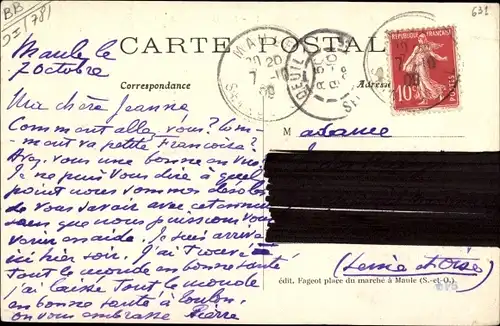 BB
631
CARTE POSTALE
Maule le
7 octobre
Correspondance
Adresse
RÉPUBLIQUE FRANÇAISE
10c
MAULE
20
7 -10
09
DEUIL
Ma chère Jeanne
Madame
Comment allez vous? Com-
ment va petite Françoise?
Avez vous une bonne en vue.
Je ne puis vous dire à quel
point nous sommes désolés
de vous savoir avec cet ennui
sans que nous puissions vous
venir en aide. Je suis arrivé
ici hier soir. J'ai trouvé
tout le monde en bonne santé
j'ai laissé tout le monde
en bonne santé à Toulon.
on vous embrasse Pierre
(Seine et Oise)
édit. Fageot place du marché à Maule (S.-et-O.)